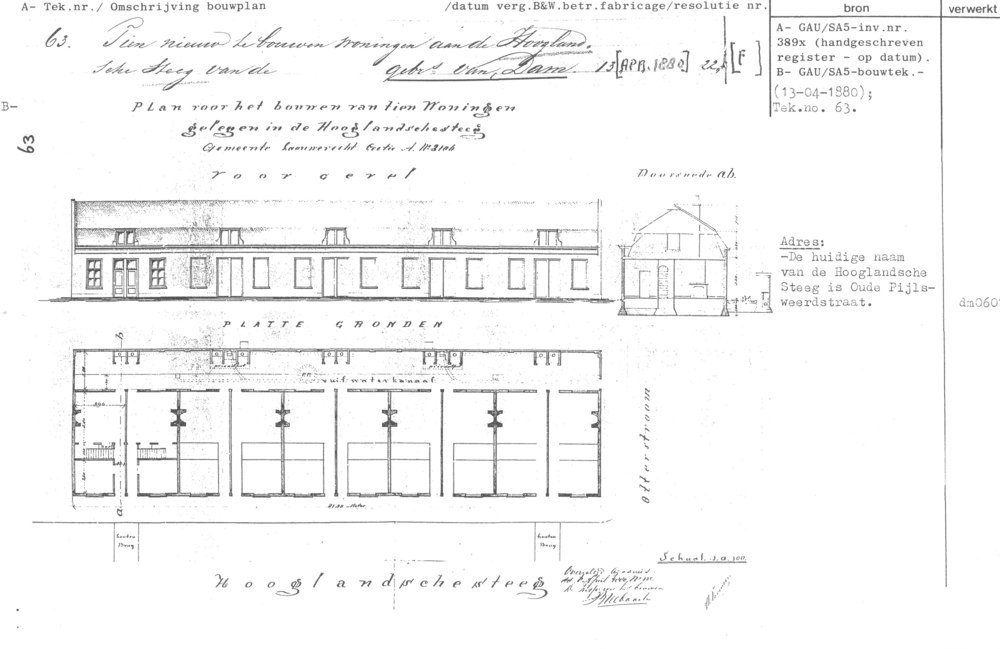 A- Tek.nr./ Omschrijving bouwplan /datum verg.B&W.betr.fabricage/resolutie nr. bron verwerkt
63. Tien nieuw te bouwen woningen aan de Hoogland-
sche Steeg van de gebrs van Dam. 13 [APR. 1880] 22, [F]
A- GAU/SA5-inv.nr.
389x (handgeschreven
register - op datum).
B- GAU/SA5-bouwtek.-
(13-04-1880);
Tek.no. 63.
B-
63
Plan voor het bouwen van tien Woningen
gelegen in de Hooglandschesteeg
Gemeente Lauwerecht Sectie A. No
voor gevel
Doorsnede ab.
Adres:
-De huidige naam
van de Hooglandsche
Steeg is Oude Pijls-
weerdstraat.
dm060
PLATTE GRONDEN
b
vuil waterkanaal
otterstroom
a
Meter
houten
Brug
houten
Brug
Schaal 1.a.100
Hooglandschesteeg